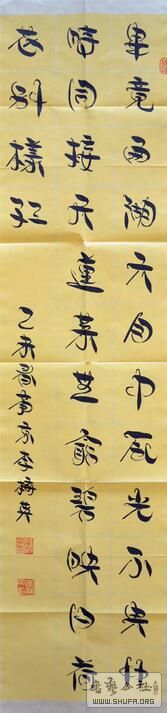 畢竟西湖六月中風光不與四
時同接天蓮葉無窮碧映日荷
花別樣紅
乙未 南京李 英
書藝公社
WWW.SHUFA.ORG